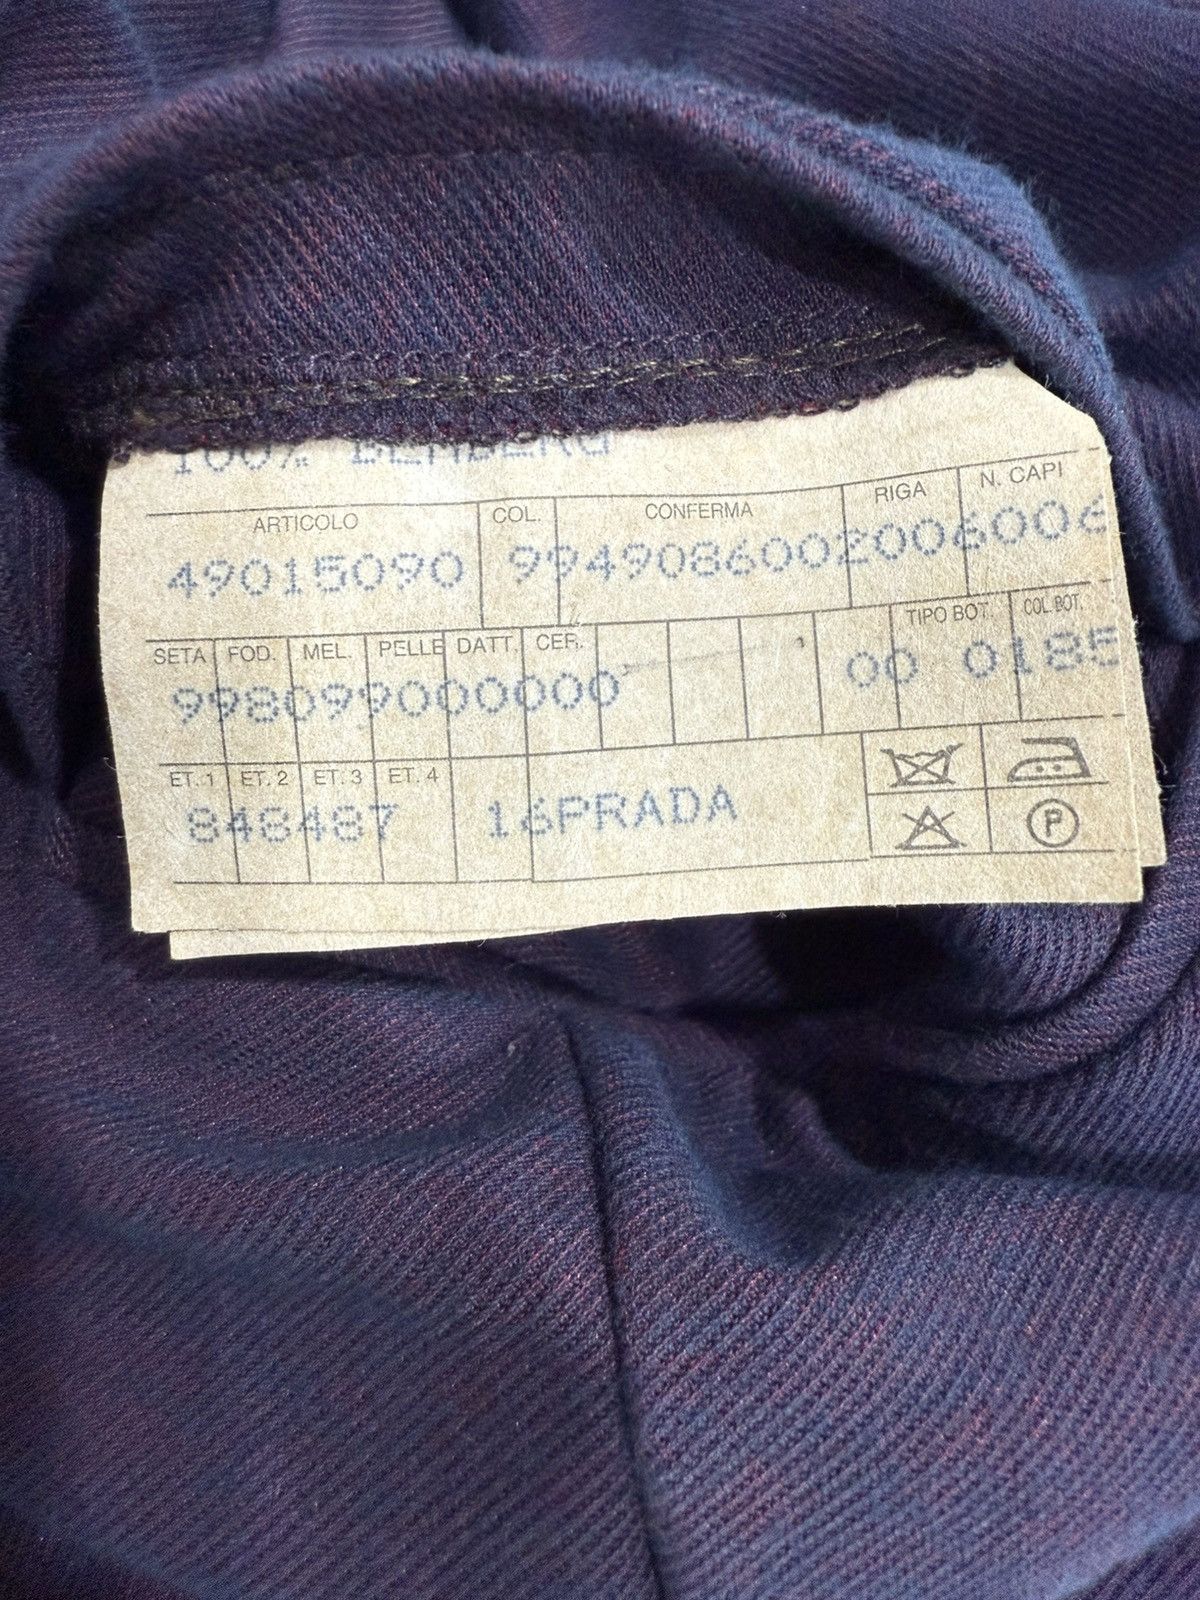 100% BEMBERG
ARTICOLO COL. CONFERMA RIGA N. CAPI
49015090 9949086002006006
SETA FOD. MEL. PELLE DATT. CER. TIPO BOT. COL. BOT.
998099000000 00 0185
ET. 1 ET. 2 ET. 3 ET. 4
848487 16PRADA
P